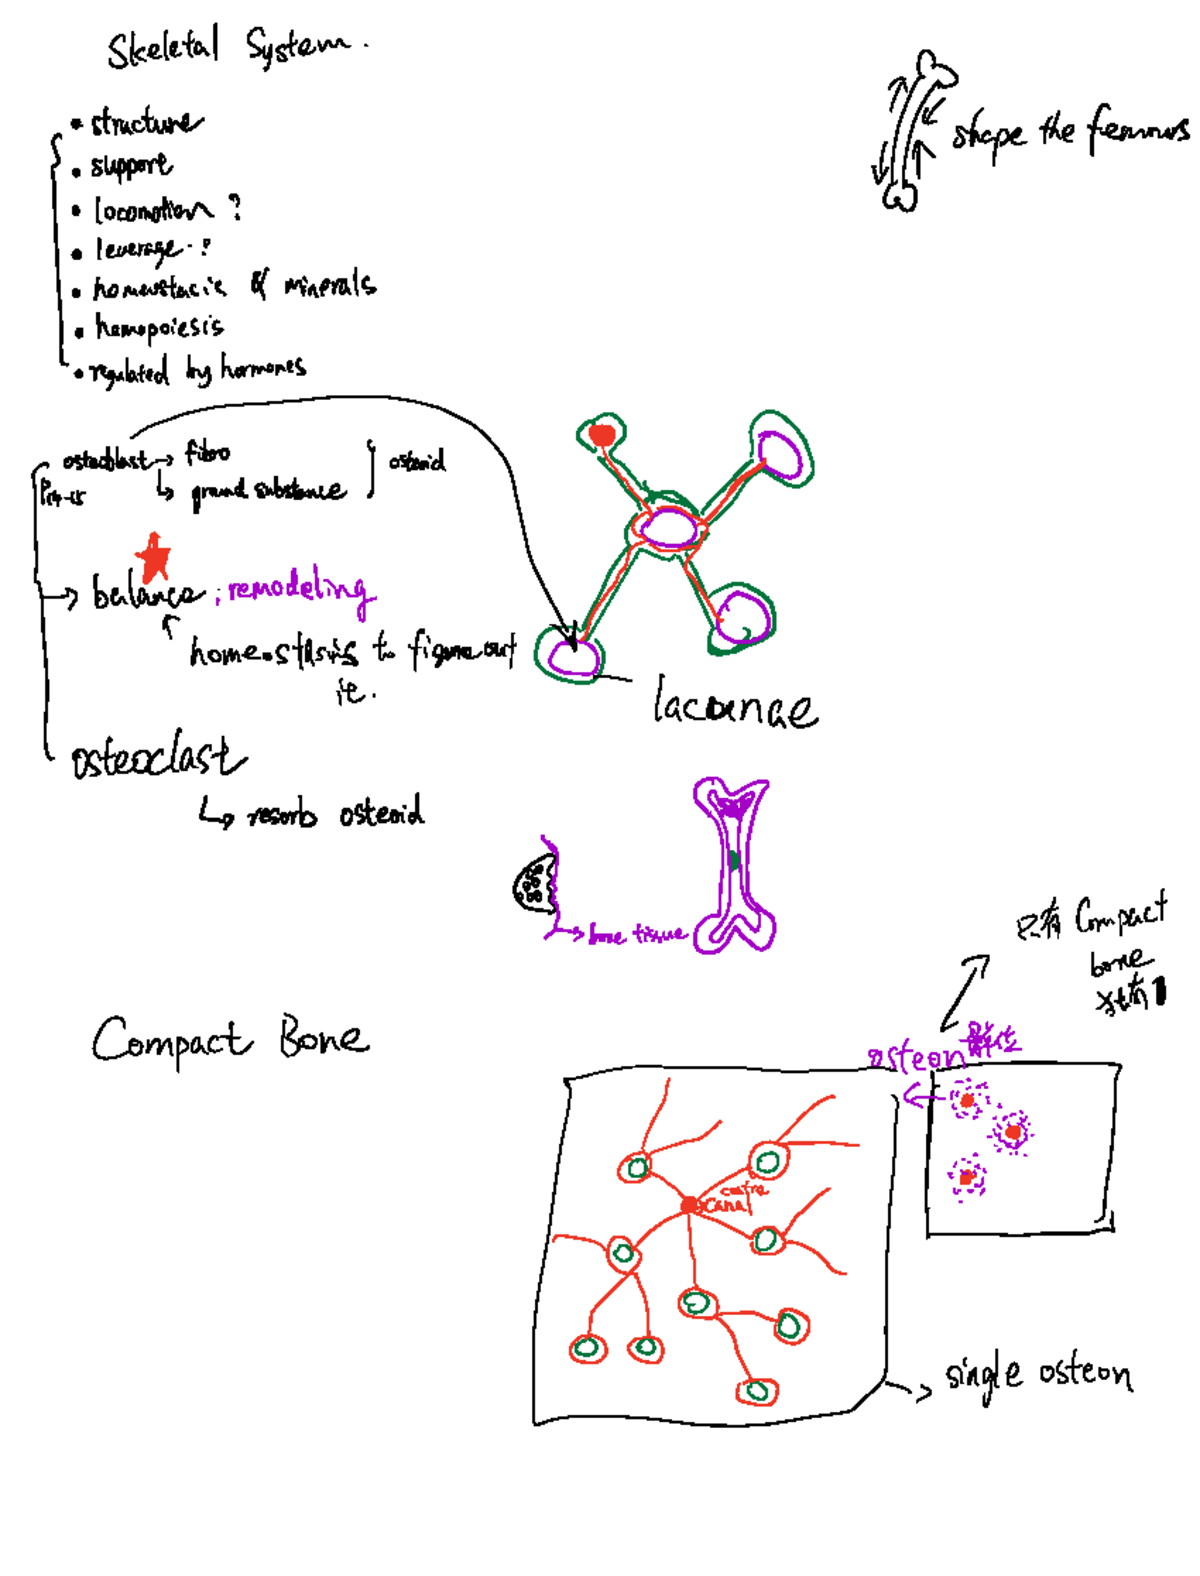 Skeletal System.
• structure
• support
• locomotion ?
• leverage ?
• homeostacis of minerals
• hemopoiesis
• regulated by hormones
shape the femours
osteoblast → fibro
↳ ground substance
osteoid
P14-15
→ balance ; remodeling
homeostasis to figure out
it.
lacunae
osteoclast
↳ resorb osteoid
→ bone tissue
只有 Compact
bone
Compact Bone
osteon
centra
canal
single osteon